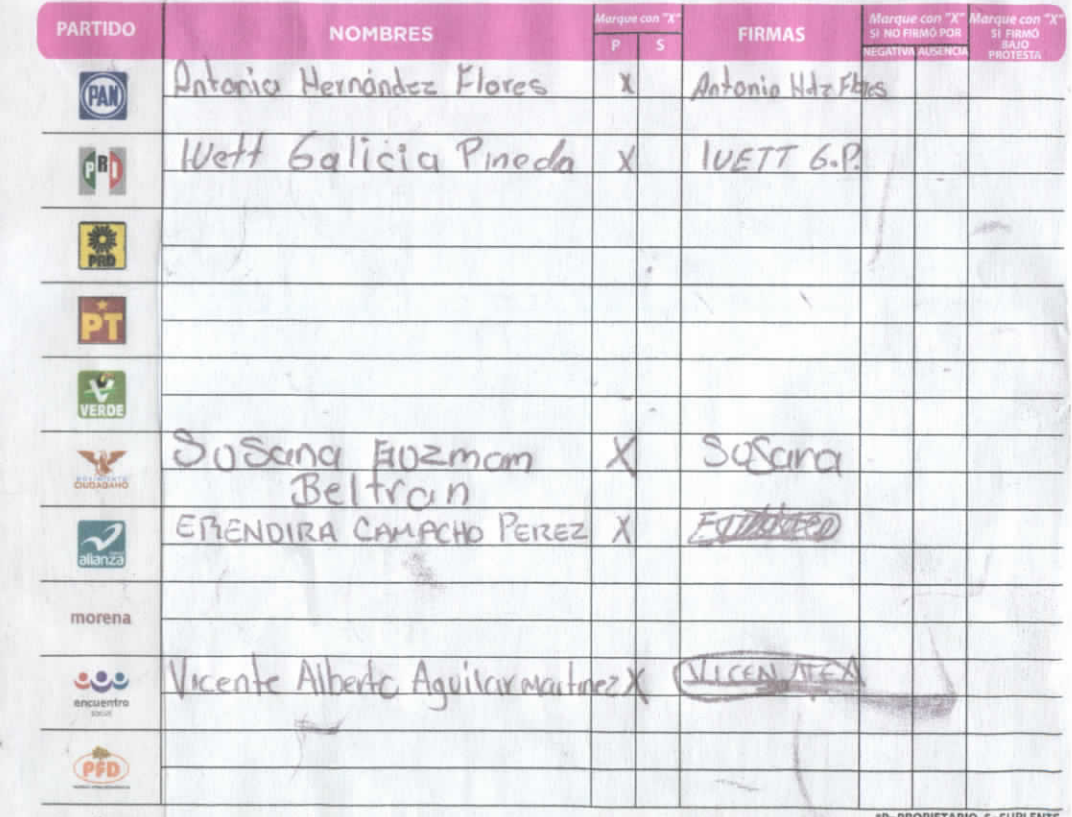 PARTIDO NOMBRES Marque con "X" P S FIRMAS Marque con "X" SI NO FIRMÓ POR NEGATIVA AUSENCIA Marque con "X" SI FIRMÓ BAJO PROTESTA
PAN Antonia Hernández Flores X Antonia Hdz Flores
PRI Ivett Galicia Pineda X IVETT G.P.
PRD
PT
VERDE
CIUDADANO SuSana Guzmam X SuSana
Beltran
alianza ERENDIRA CAMACHO PEREZ X
morena
encuentro social Vicente Alberto Aguilar Martinez X
PFD
*P=PROPIETARIO S=SUPLENTE